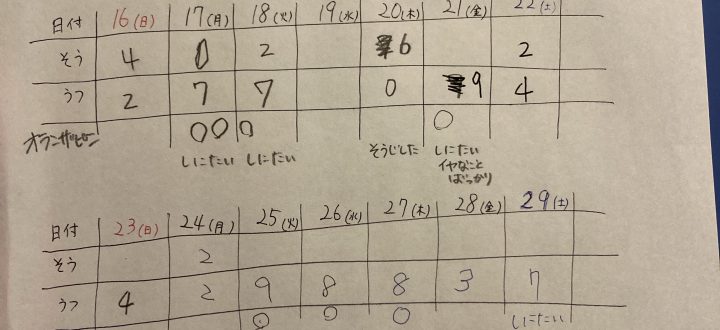 日付 16(日) 17(月) 18(火) 19(水) 20(木) 21(金) 22(土)
そう 4 0 2 6 2
うつ 2 7 7 0 9 4
オランザピン ○○ ○ ○
しにたい しにたい そうじした しにたい
イヤなこと
ばっかり
日付 23(日) 24(月) 25(火) 26(水) 27(木) 28(金) 29(土)
そう 2
うつ 4 2 9 8 8 3 7
○ ○ ○ しにたい